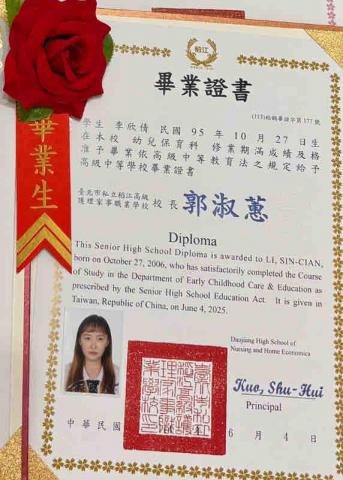 稻江
畢業證書
學生 李欣倩 民國 95 年 10 月 27 日生
在本校 幼兒保育科 修業期滿成績及格
准予畢業依高級中等教育法之規定給予
高級中等學校畢業證書
臺北市私立稻江高級
護理家事職業學校
校長 郭淑蕙
畢業生
Diploma
This Senior High School Diploma is awarded to LI, SIN-CIAN,
born on October 27, 2006, who has satisfactorily completed the Course
of Study in the Department of Early Childhood Care & Education as
prescribed by the Senior High School Education Act. It is given in
Taiwan, Republic of China, on June 4, 2025.
Daojiang High School of
Nursing and Home Economics
Kuo, Shu-Hui
Principal
中華民國
6 月 4 日